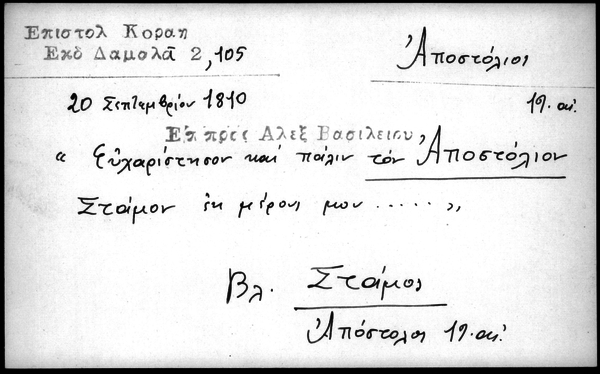 Επιστολ Κοραη
Εκδ Δαμολᾶ 2,105
Ἀποστόλιος
20 Σεπτεμβρίου 1810
19. αἰ.
Επ προς Αλεξ Βασιλειου
" Εὐχαρίστησον καί πάλιν τόν Ἀποστόλιον
Στάμον ἐκ μέρους μου ..... „
Βλ. Στάμος
Ἀπόστολος 19. αἰ.